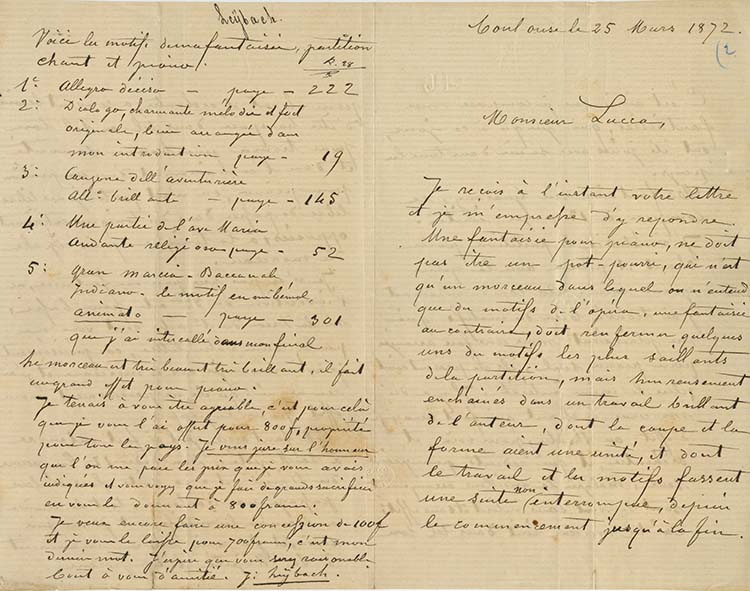 Toulouse le 25 Mars 1872.
(2
Monsieur Lucca,
Je reçois à l'instant votre lettre
et je m'empresse d'y repondre.
Une fantaisie pour piano, ne doit
pas être un pot-pourri, qui n'est
qu'un morceau dans lequel on n'entend
que du motifs de l'opéra, une fantaisie
au contraire, doit renfermer quelques
uns du motifs les plus saillants
de la partition, mais heureusement
enchainés dans un travail brillant
de l'auteur, dont la coupe et la
forme aient une unité, et dont
le travail et les motifs fassent
une suite non interrompue, depuis
le commencement jusqu'à la fin.
Leÿbach.
Voici les motifs de ma fantaisie, partition
chant et piano:
1e Allegro deciso — page — 222
2: Dialogo, charmante mélodie et fort
originale, bien arrangée dans
mon introduction page — 19
3: Canzone dell'avventuriere
All: brillante — page — 145
4: Une partie de l'ave Maria
Andante religioso page — 52
5: Gran marcia - Baccanale
Indiano - le motif en mi bémol,
animato — page — 301
que j'ai intercallé dans mon final
Le morceau est très beau et très brillant, il fait
un grand effet pour piano.
Je tenais à vous être agréable, c'est pour celà
que je vous l'ai offert pour 800f, propriété
pour tous les pays. Je vous jure sur l'honneur
que l'on me paie les prix que je vous avais
indiqués et vous voyez que je fais de grands sacrifices
en vous le donnant à 800 francs.
Je veux encore faire une concession de 100f
et je vous le laisse pour 700 francs, c'est mon
dernier mot. J'espère que vous serez raisonable
Tout à vous d'amitié. J: Leÿbach.